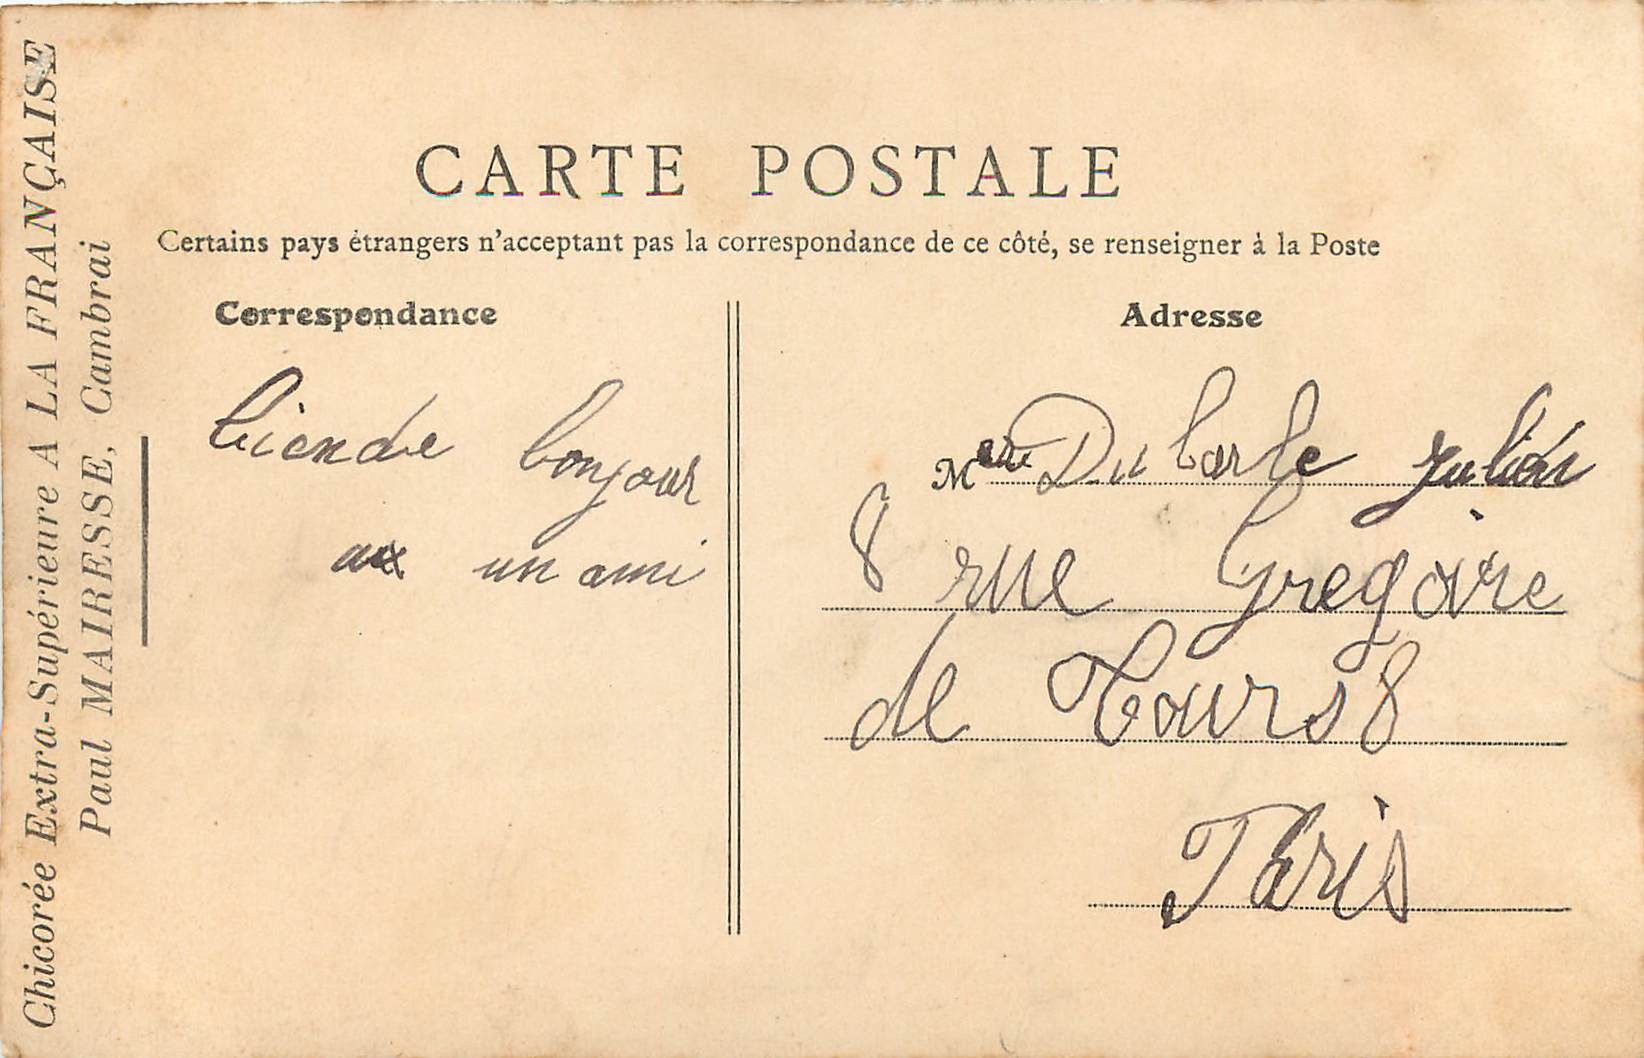 Chicorée Extra-Supérieure A LA FRANÇAISE
Paul MAIRESSE, Cambrai
CARTE POSTALE
Certains pays étrangers n'acceptant pas la correspondance de ce côté, se renseigner à la Poste
Correspondance
biende bonjour
un ami
Adresse
M Dubarle julien
8 rue Gregoire
de Tours 8
Paris